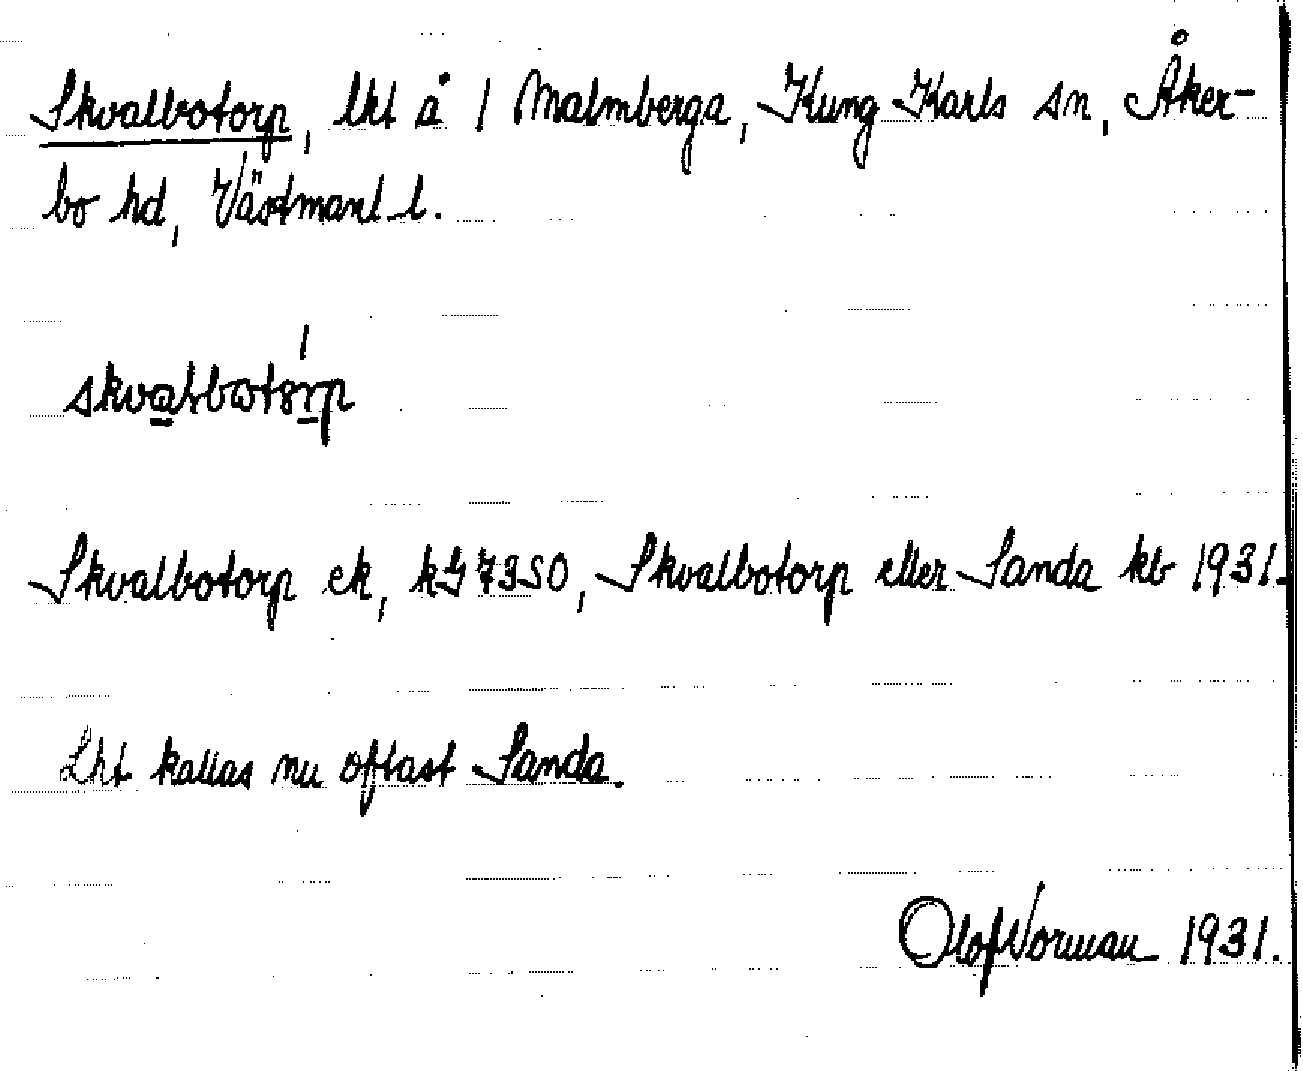 Skvalbotorp, lht å 1 Malmberga, Kung Karls sn, Åker-
bo hd, Västmanl l.
Skvalbotorp ek, kG 7350, Skvalbotorp eller Sanda kb 1931.
Lht kallas nu oftast Sanda.
Olof Norman 1931.